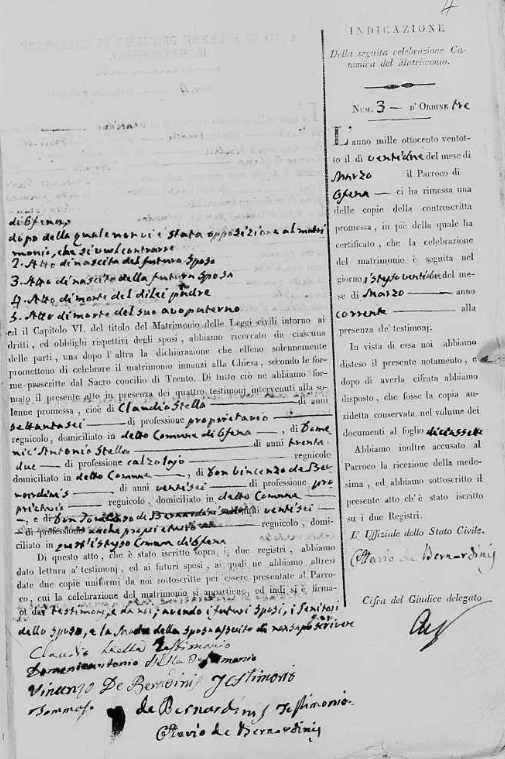 4
di Ofena
dopo della quale non vi è stata opposizione al matri
monio, che si vuol contrarre
2. Atto di nascita del futuro sposo
3. Atto di nascita della futura sposa
4. Atto di morte del di lei padre
5. Atto di morte del suo avo paterno
ed il Capitolo VI. del titolo del Matrimonio delle Leggi civili intorno ai
dritti, ed obblighi rispettivi degli sposi, abbiamo ricercato da ciascuna
delle parti, una dopo l'altra la dichiarazione che elleno solennemente
promettono di celebrare il matrimonio innanzi alla Chiesa, secondo le for-
me prescritte dal Sacro concilio di Trento. Di tutto ciò ne abbiamo for-
malo il presente atto in presenza dei quattro testimonj intervenuti alla so-
lenne promessa, cioè di Claudio Stella di anni
settantasei di professione proprietario
regnicolo, domiciliato in detto Comune di Ofena, di Dome
nic'Antonio Stella di anni trenta
due di professione calzolajo regnicolo
domiciliato in detto Comune, di Don Vincenzo de Ber
nardinis di anni ventisei di professione pro
prietario regnicolo, domiciliato in detto Comune
, e di Don Tommaso de Bernardinis ventisei
di professione anche proprietario regnicolo, domi-
ciliato in quest'istesso Comune di Ofena
Di questo atto, che è stato iscritto sopra i due registri, abbiamo
dato lettura a' testimonj, ed ai futuri sposi, ai quali ne abbiamo altresì
date due copie uniformi da noi sottoscritte per essere presentate al Parro-
co, cui la celebrazione del matrimonio si appartiene, ed indi si è firma-
to dai testimonj, e da noi, avendo i futuri sposi, i Genitori
dello sposo, e la Madre della sposa asserito di non saper scrivere
Claudio Stella Testimonio
Domenicantonio Stella Testimonio
Vincenzo De Bernardinis Testimonio
Tommaso de Bernardinis Testimonio
Ottavio de Bernardinis
INDICAZIONE
Della seguita celebrazione Ca-
nonica del Matrimonio.
Num. 3 d'Ordine tre
L'anno mille ottocento ventot-
to il dì ventidue del mese di
Marzo il Parroco di
Ofena ci ha rimessa una
delle copie della controscritta
promessa, in piè della quale ha
certificato, che la celebrazione
del matrimonio è seguita nel
giorno istesso ventidue del me-
se di Marzo anno
corrente alla
presenza de' testimonj.
In vista di essa noi abbiamo
disteso il presente notamento, e
dopo di averla cifrata abbiamo
disposto, che fosse la copia an-
zidetta conservata nel volume dei
documenti al foglio diciassette
Abbiamo inoltre accusato al
Parroco la ricezione della mede-
sima, ed abbiamo sottoscritto il
presente atto ch'è stato iscritto
su i due Registri.
L'Uffiziale dello Stato Civile.
Ottavio de Bernardinis
Cifra del Giudice delegato